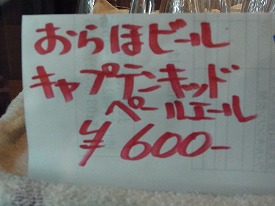 おらほビール
キャプテンキッド
ペールエール
¥600-